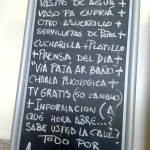 VASITO DE AGUA +
VASO PA ENFRIA +
OTRO ASUCRILLO +
SERVILLETAS DE PAPEL
CUCHARILLA + PLATILLO
+ PRENSA DEL DIA +
"VIA PAJA AR BAÑO" +
CHARLA PSICOLOGICA +
TV GRATIS (50 CANALES)
+ INFORMACION (A
QUÉ HORA ABRE...?
SABE USTED LA CALLE)
TODO POR